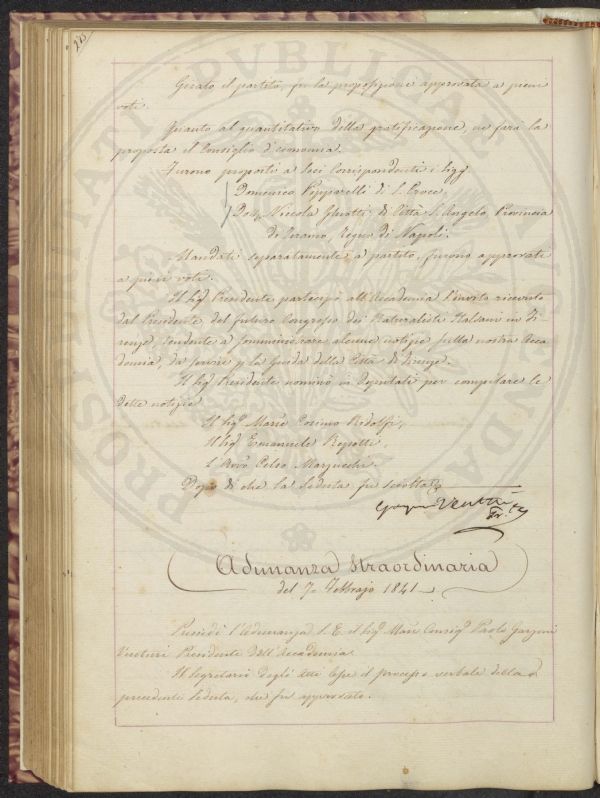 Girato il partito, fu la proposizione approvata a pieni
voti.
Quanto al quantitativo della gratificazione, ne farà la
proposta il Consiglio d'economia.
Furono proposti a Soci Corrispondenti i Sigg.
Domenico Pipparelli di S. Croce,
Dott. Niccola di Città S. Angelo, Provincia
di Teramo, Regno di Napoli.
Mandati separatamente a partito, furono approvati
a pieni voti.
Il Sig. Presidente partecipò all'Accademia l'invito ricevuto
dal Presidente del futuro Congresso dei Naturalisti Italiani in Fi-
renze, tendente a somministrare alcune notizie sulla nostra Acca
demia, da servire p la Guida della Città di Firenze.
Il Sig. Presidente nominò in Deputati per compilare le
dette notizie
Il Sig. March. Cosimo Ridolfi,
Il Sig. Emanuele Repetti.
L'Avv. Celso Marzucchi.
Dopo di che la Seduta fu sciolta
Venturi
Adunanza Straordinaria
del 7. Febbrajo 1841
Presiedè l'Adunanza S. E. il Sig. March. Consigl. Paolo Garzoni
Venturi Presidente dell'Accademia.
Il Segretario degli Atti lesse il processo verbale della
precedente Seduta, che fu approvato.
PROSPERITATI PUBLICAE AUGENDAE